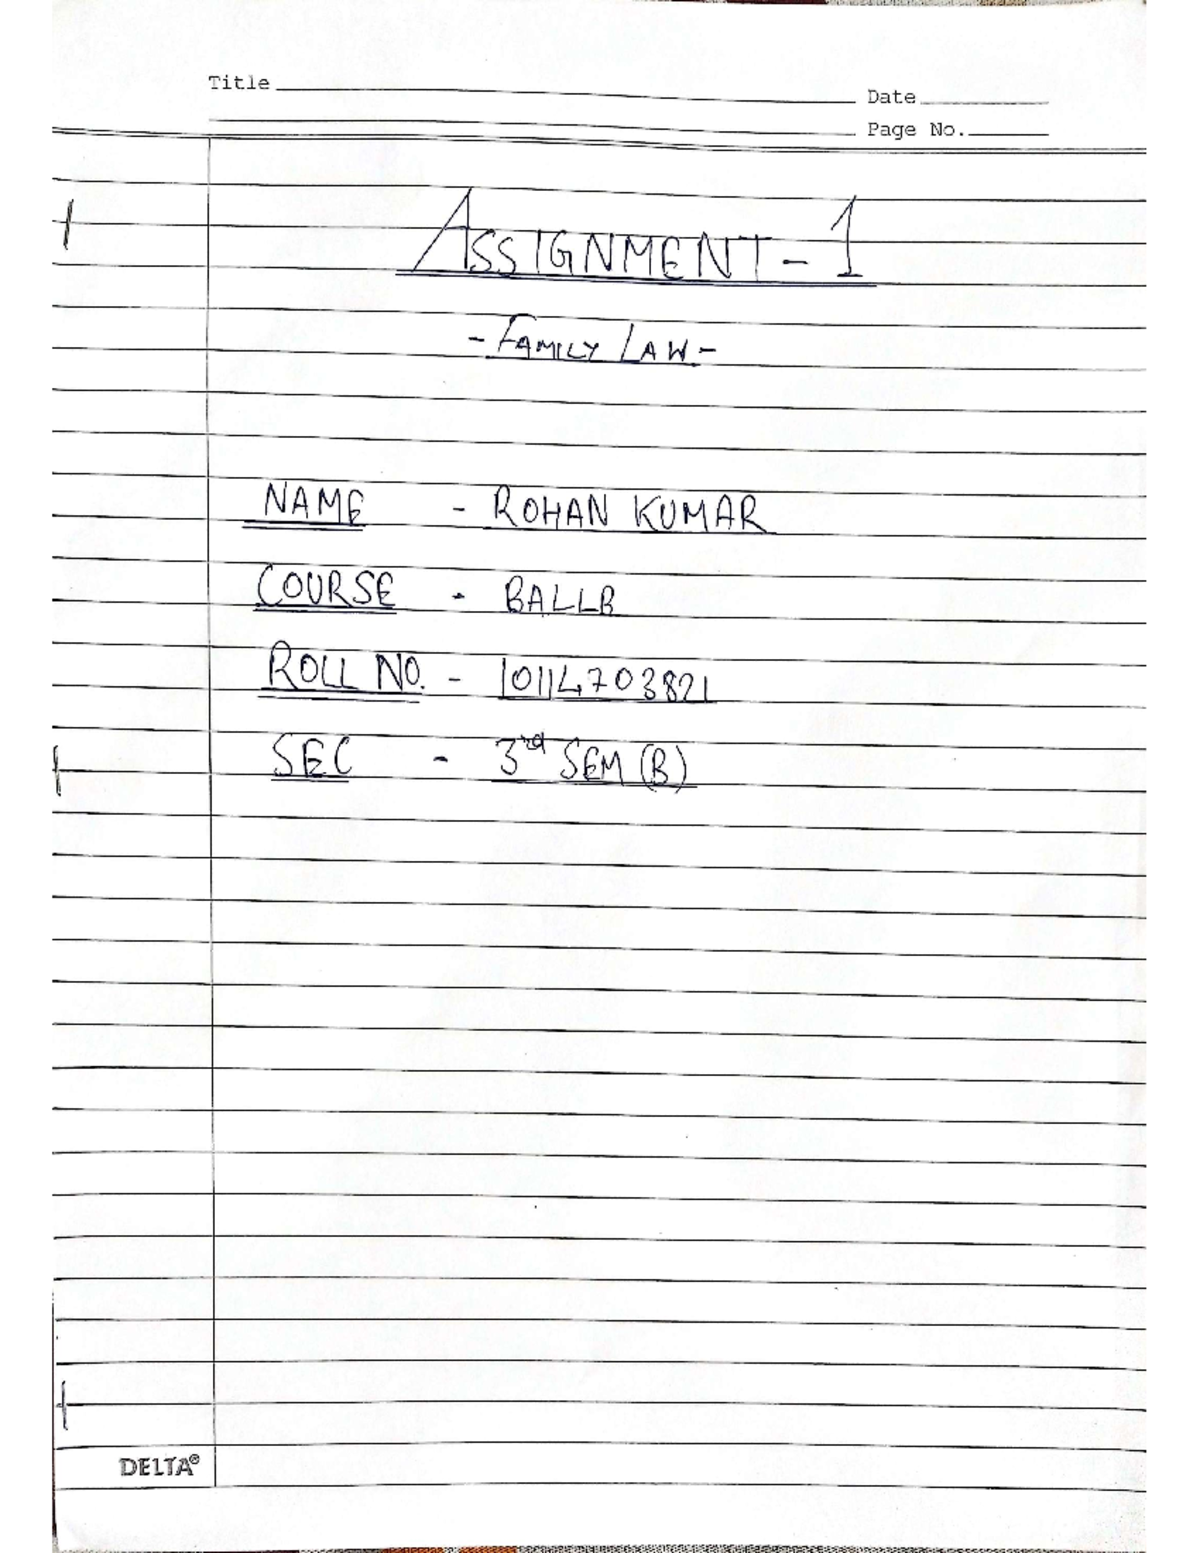 Title
Date
Page No.
ASSIGNMENT - 1
- FAMILY LAW -
NAME - ROHAN KUMAR
COURSE - BALLB
ROLL NO. - 10114703821
SEC - 3rd SEM (B)
DELTA®